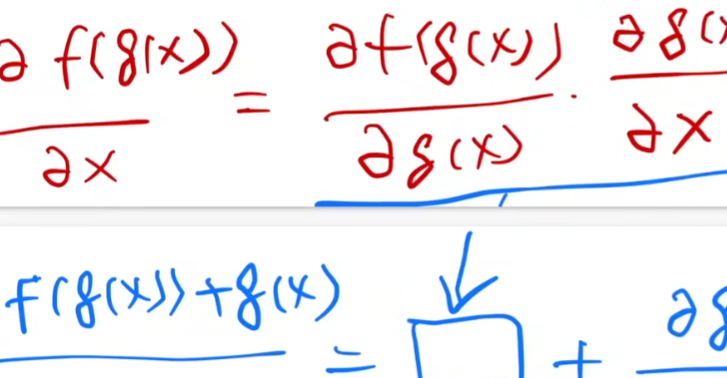 ∂ f(g(x)) / ∂x = ∂f(g(x)) / ∂g(x) · ∂g(x / ∂x
f(g(x)) + g(x) = □ + ∂g